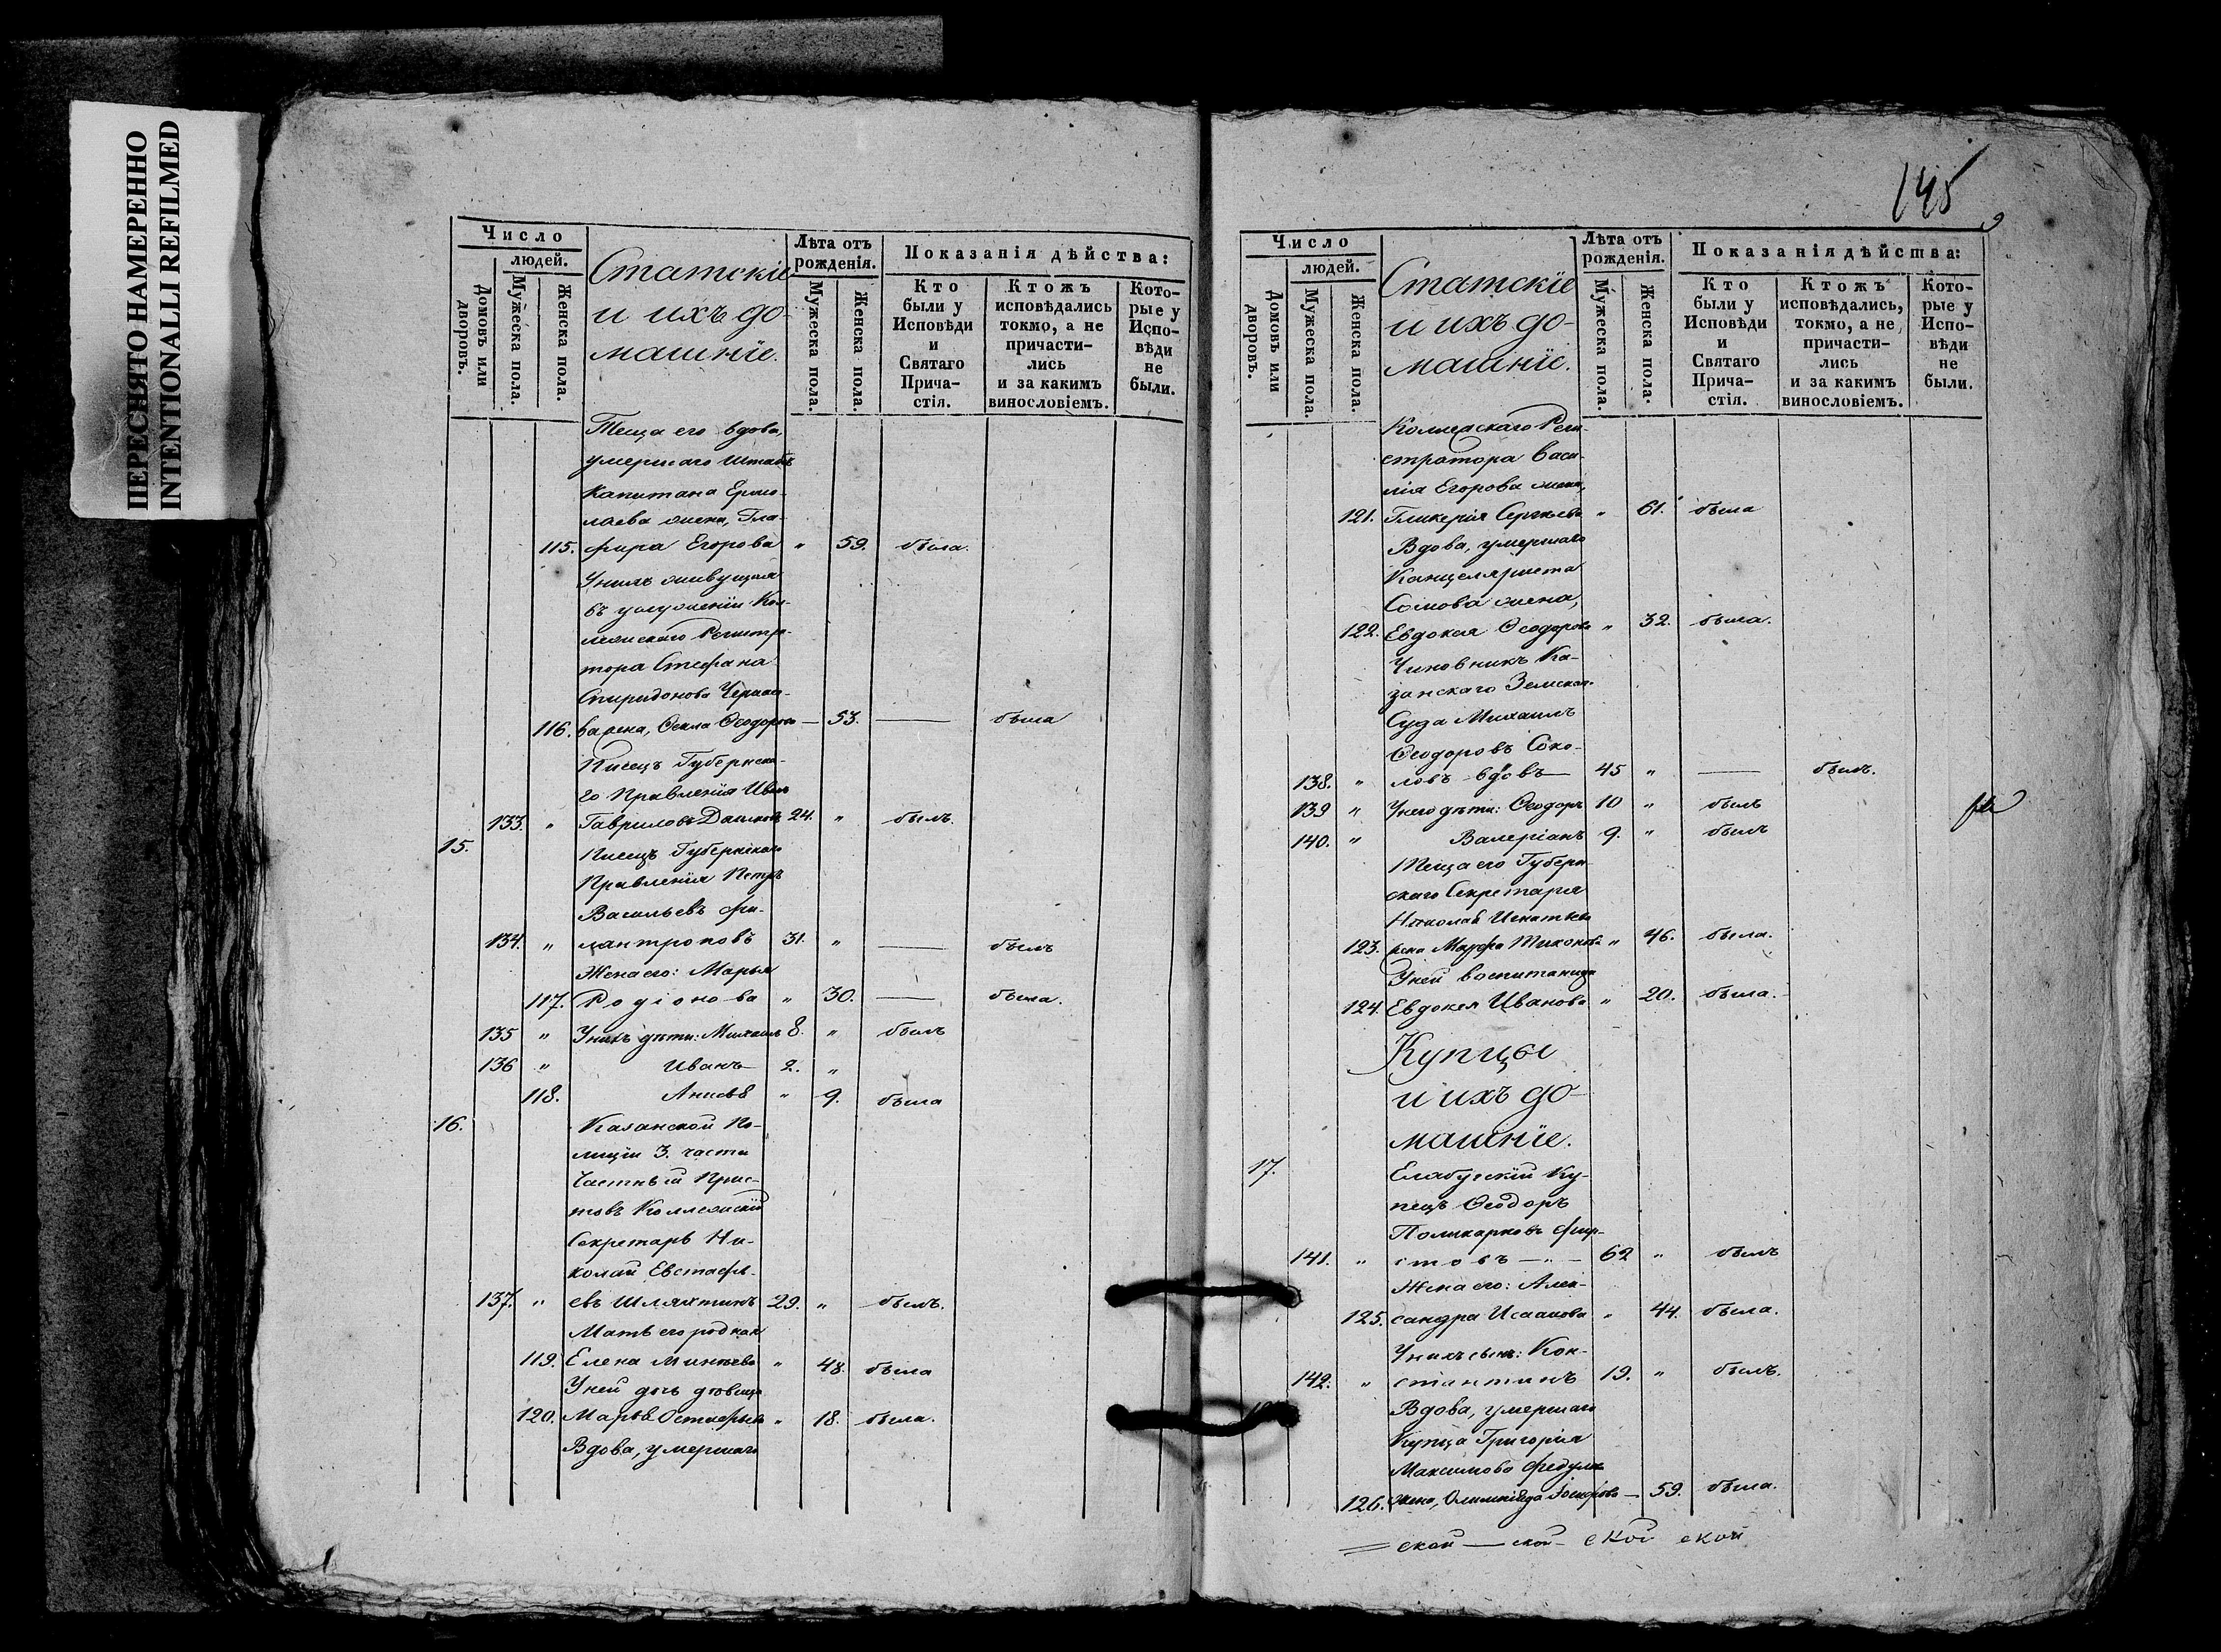 ПЕРЕСНЯТО НАМЕРЕННО
INTENTIONALLI REFILMED
Число
людей.
Домовъ или дворовъ.
Мужеска пола.
Женска пола.
Статскіе
и ихъ до-
машніе.
Лѣта отъ рожденія.
Мужеска пола.
Женска пола.
Показанія дѣйства:
Кто были у Исповѣди и Святаго Прича-стія.
Ктожъ исповѣдались токмо, а не причасти-лись и за какимъ винословіемъ.
Кото-рые у Испо-вѣди не были.
Теща его вдова,
умершаго Штабъ
Капитана Ермо-
лаева жена, Гла-
115. фира Егорова " 59. была.
Унихъ живущая
въ услуженіи Кол-
лежскаго Регистра-
тора Стефана
Спиридонова
116. Ѳекла Ѳеодорова — 53. — была
Писецъ Губернска-
го Правленія Иванъ
133. " Гавриловъ 24. " былъ.
15. Писецъ Губернскаго
Правленія Петръ
Васильевъ Фи-
134. " лантроповъ 31. " — былъ
Жена его: Марья
117. Родіонова " 30. — была.
135 " Унихъ дѣти: Михаилъ 8. " былъ
136 " Иванъ — 2. "
118. " 9. была
16. Казанской По-
лиціи 3. части
Частный Прис-
товъ Коллежскій
Секретарь Ни-
колай Евстафь-
137. " евъ Шляхтинъ 29. " былъ.
Мать его родная
119. Елена Минѣева " 48. была
Уней дочь дѣвица
120. Марья " 18. была.
Вдова, умершаго
145
9
Число
людей.
Домовъ или дворовъ.
Мужеска пола.
Женска пола.
Статскіе
и ихъ до-
машніе.
Лѣта отъ рожденія.
Мужеска пола.
Женска пола.
Показанія дѣйства:
Кто были у Исповѣди и Святаго Прича-стія.
Ктожъ исповѣдались, токмо, а не причасти-лись и за какимъ винословіемъ.
Кото-рые у Испо-вѣди не были.
Коллежскаго Реги-
стратора Васи-
лія Егорова жена,
121. Гликерія Сергѣева " 61. была
Вдова, умершаго
Канцеляриста
Сомова жена,
122. Евдокея Ѳеодорова " 32. была.
Чиновникъ Ка-
занскаго Земскаго
Суда Михаилъ
Ѳеодоровъ Соко-
138. " ловъ вдовъ — 45 " — былъ.
139 " Унего дѣти: Ѳеодоръ 10 " былъ
140. " Валеріанъ 9. " былъ
Теща его Губерн-
скаго Секретаря
Николая Игнатьева
123. жена Марфа Тихонова " 46. была.
Уней воспитаница
124. Евдокея Иванова " 20. была.
Купцы
и ихъ до-
машніе.
17. Елабугскій Ку-
пецъ Ѳеодоръ
Поликарповъ Фир-
141. " стовъ — " — 62 " былъ
Жена его: Алек-
125. сандра Исаакова " 44. была.
Унихъ сынъ: Кон-
142. " стантинъ 19. " былъ.
Вдова, умершаго
Купца Григорія
Максимова
126. жена, Олимпіяда Іосифова — 59. была.
ской — ской — ской ской